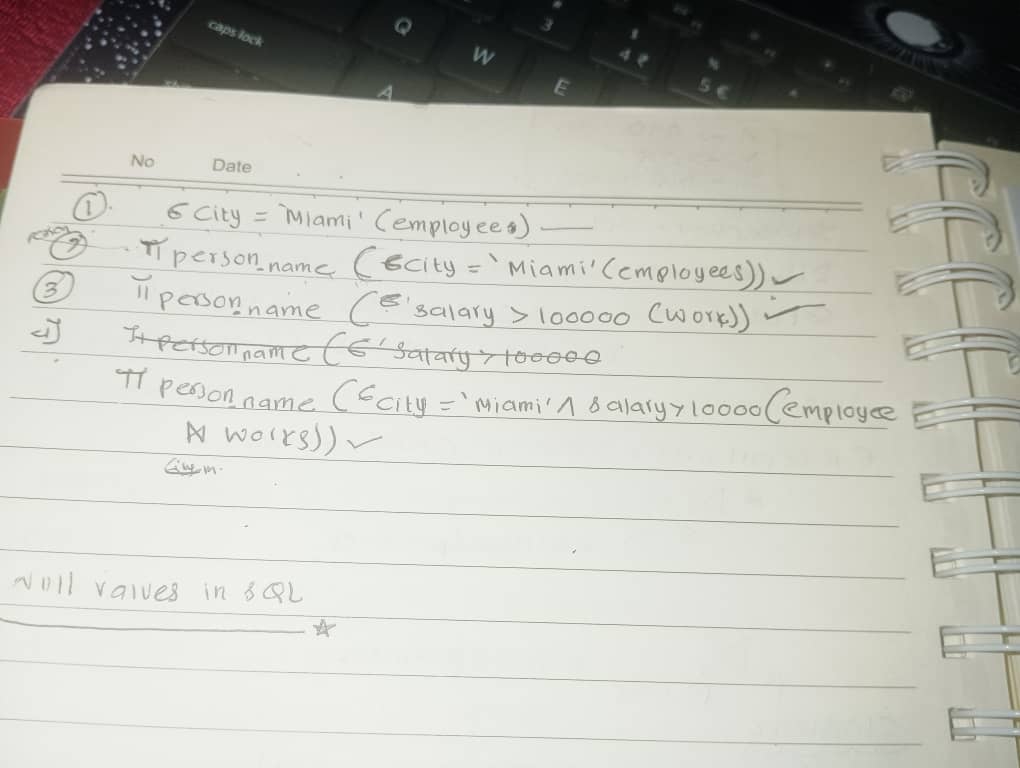 caps lock
Q
W
E
A
3
$
4 ₹
%
5 €
No Date
① 6 City = 'Miami' (employees) —
② π person_name (6city = 'Miami' (employees)) ✓
③ π person_name (6 'salary > 100000 (work)) ✓
4] π person name (6 'salary > 100000
π person_name (6city = 'Miami' ∧ salary > 10000 (employee
⋈ works)) ✓
Null values in SQL
☆